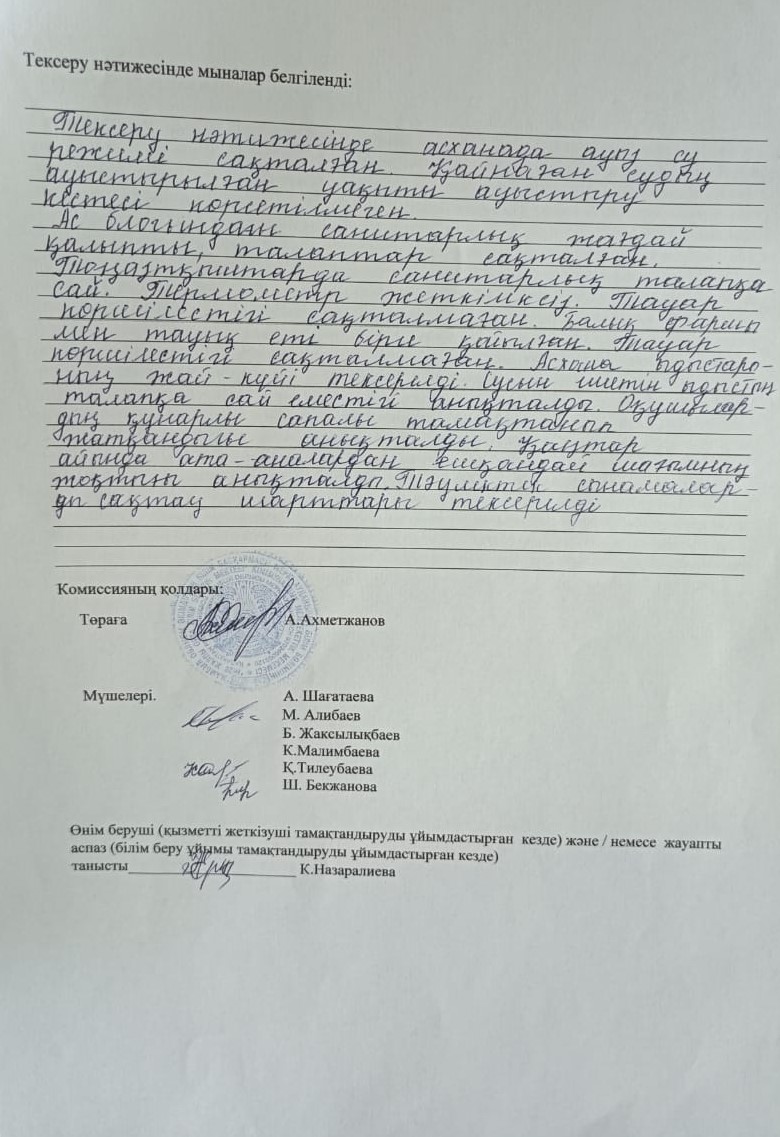 Тексеру нәтижесінде мыналар белгіленді:
Тексеру нәтижесінде асханада ауыз су
режимі сақталған. Қайнаған судың
ауыстырылған уақыты ауыстыру
кестесі көрсетілмеген.
Ас блогындағы санитарлық жағдай
қалыпты, талаптар сақталған.
Тоңазытқыштарда санитарлық талапқа
сай. Термометр жеткіліксіз. Тауар
көршілестігі сақталмаған. Балық фаршы
мен тауық еті бірге қойылған. Тауар
көршілестігі сақталмаған. Асхана ыдыстары-
ның жай-күйі тексерілді. Сусын ішетін ыдыстың
талапқа сай еместігі анықталды. Оқушылар-
дың құнарлы сапалы тамақтанып
жатқандығы анықталды. Қаңтар
айында ата-аналардан ешқандай шағымның
жоқтығы анықталды. Тәуліктік сынамалар-
ды сақтау шарттары тексерілді
Комиссияның қолдары:
Төраға А.Ахметжанов
Мүшелері. А. Шағатаева
М. Алибаев
Б. Жаксылықбаев
К.Малимбаева
Қ.Тилеубаева
Ш. Бекжанова
Өнім беруші (қызметті жеткізуші тамақтандыруды ұйымдастырған кезде) және / немесе жауапты
аспаз (білім беру ұйымы тамақтандыруды ұйымдастырған кезде)
танысты К.Назаралиева